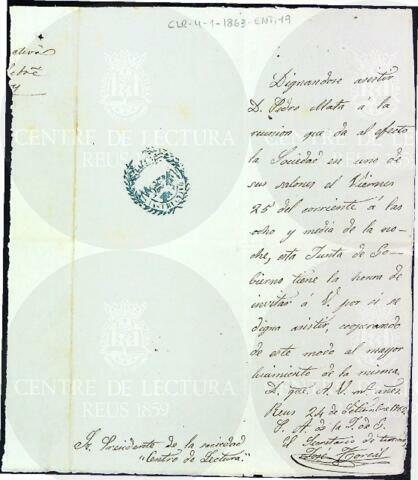 CLR-4-1-1863-ENT.19
Dignandose asistir
D. Pedro Mata á la
reunion que da al efecto
la Sociedad en uno de
sus salones el Viernes
25 del corriente á las
ocho y media de la no-
che, esta Junta de Go-
bierno tiene la honra de
invitar á V. por si se
digna asistir, cooperando
de este modo al mayor
lucimiento de la misma.
D. gue. A. V. ms. años.
Reus 24 de Setiembre
P. A. de la J. de G.
El Secretario de turno
José
Sr. Presidente de la sociedad
"Centro de Lectura."
CENTRE DE LECTURA
REUS 1859